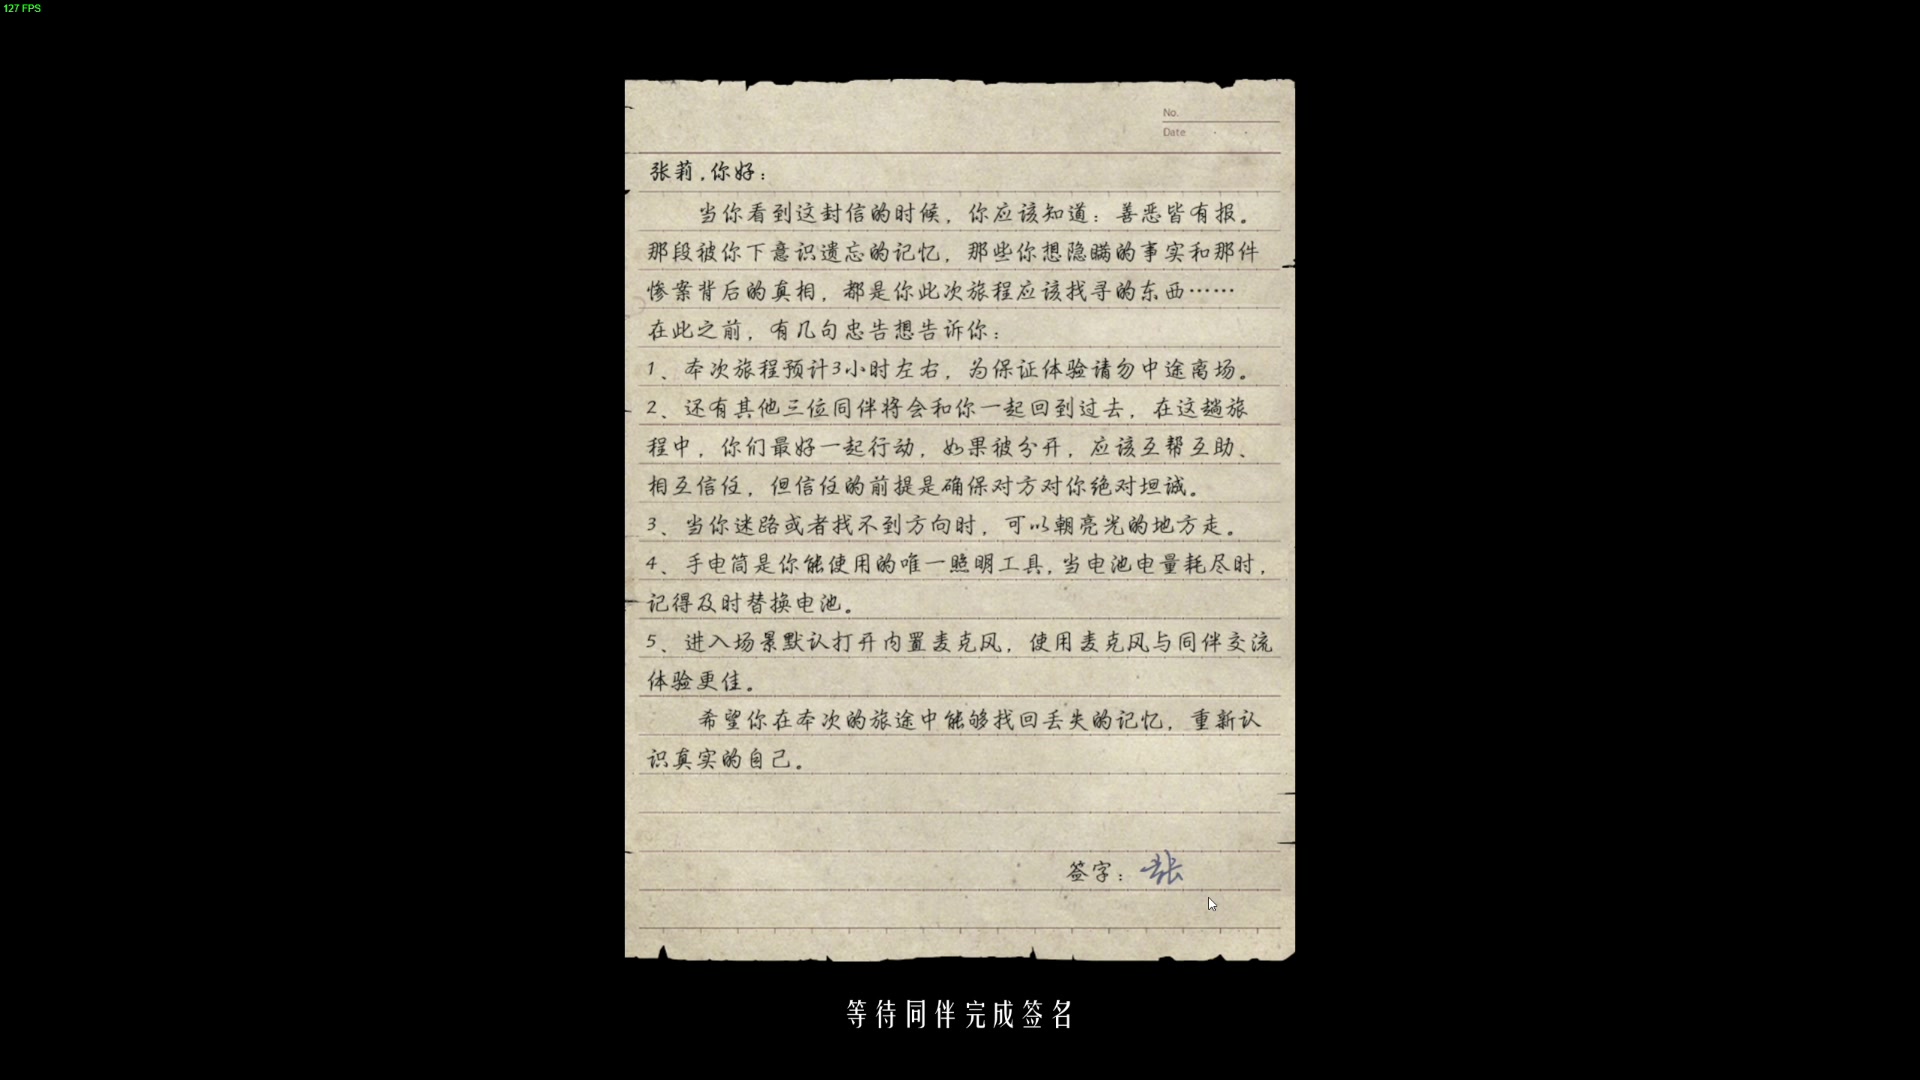 127 FPS
No.
Date
张莉,你好：
当你看到这封信的时候，你应该知道：善恶皆有报。
那段被你下意识遗忘的记忆，那些你想隐瞒的事实和那件
惨案背后的真相，都是你此次旅程应该找寻的东西……
在此之前，有几句忠告想告诉你：
1、本次旅程预计3小时左右，为保证体验请勿中途离场。
2、还有其他三位同伴将会和你一起回到过去，在这趟旅
程中，你们最好一起行动，如果被分开，应该互帮互助、
相互信任，但信任的前提是确保对方对你绝对坦诚。
3、当你迷路或者找不到方向时，可以朝亮光的地方走。
4、手电筒是你能使用的唯一照明工具,当电池电量耗尽时，
记得及时替换电池。
5、进入场景默认打开内置麦克风，使用麦克风与同伴交流
体验更佳。
希望你在本次的旅途中能够找回丢失的记忆，重新认
识真实的自己。
签字：张
等待同伴完成签名